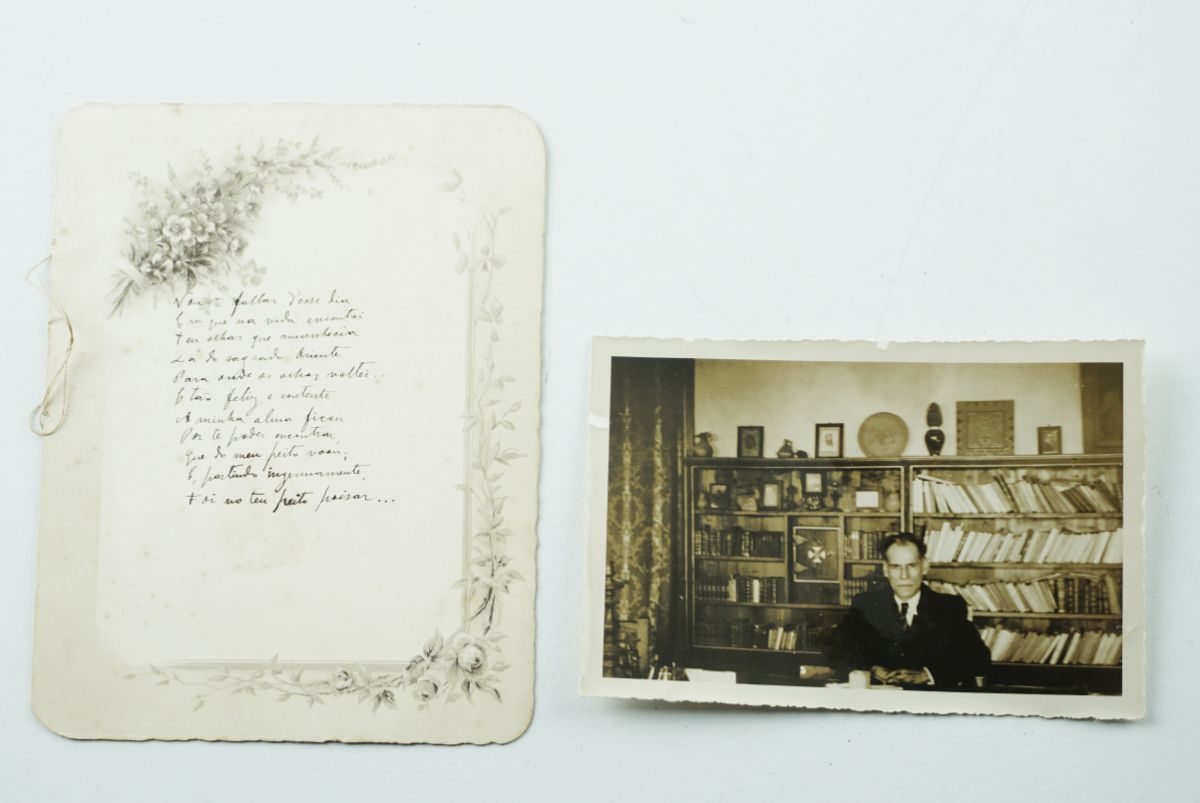 Vou-te fallar d'esse dia
Em que na vida encontrei
Teu olhar que amanhecia
Lá do sagrado Oriente
Para onde os olhos voltei...
E tão feliz e contente
A minha alma ficou
Por te poder encontrar,
Que do meu peito voou;
E, partindo ingenuamente,
Foi no teu peito poisar...